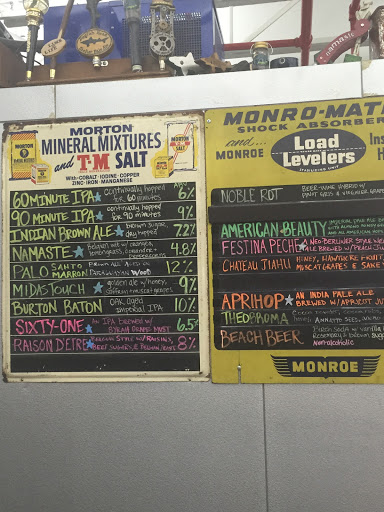 MORTON
MINERAL MIXTURES
and T-M SALT
With-COBALT-IODINE-COPPER
ZINC-IRON-MANGANESE
MORTON
60 MINUTE IPA continually hopped for 60 minutes 6%
90 MINUTE IPA continually hopped for 90 minutes 9%
INDIAN BROWN ALE brown sugar, dry hopped 7.2
NAMASTE Belgian wit w/ oranges, lemongrass + 4.8%
PALO SANTO MARRON BROWN ALE AGED ON WOOD 12%
MIDAS TOUCH golden ale w/ honey, grapes 9%
BURTON BATON OAK aged imperial IPA 10%
SIXTY-ONE AN IPA BREWED w/ SYRAH GRAPE MUST 6.5
RAISON DETRE w/ RAISINS, BEET SUGARS & BELGIAN YEAST 8%
MONRO-MATIC
SHOCK ABSORBER
and...
MONROE
Load
Levelers
NOBLE ROT BEER-WINE HYBRID w/
AMERICAN BEAUTY IMPERIAL PALE ALE
FESTINA PECHE A NEO-BERLINER
CHATEAU JIAHU HONEY, HAWTHORNE FRUIT, MUSCAT GRAPES & SAKE
APRIHOP AN INDIA PALE ALE BREWED w/ APRICOT
THEOBROMA
BEACH BEER Birch Soda w/ vanilla
Non-alcoholic
MONROE